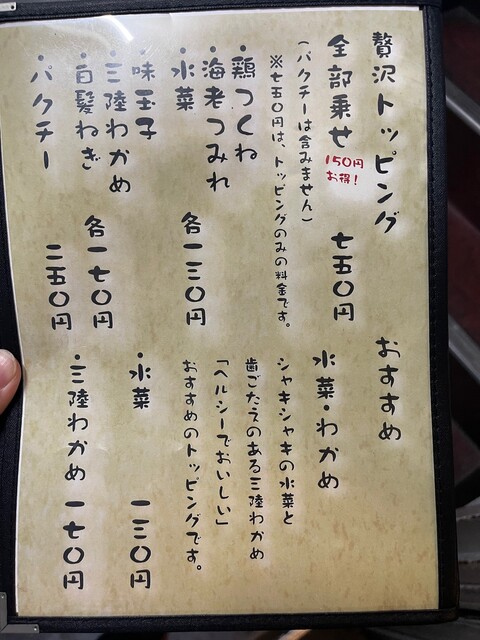 贅沢トッピング
全部乗せ 150円お得! 七五〇円
(パクチーは含みません)
※七五〇円は、トッピングのみの料金です。
・鶏つくね
・海老つみれ
・水菜 各一三〇円
・味玉子
・三陸わかめ
・白髪ねぎ 各一七〇円
・パクチー 二五〇円
おすすめ
水菜・わかめ
シャキシャキの水菜と
歯ごたえのある三陸わかめ
「ヘルシーでおいしい」
おすすめのトッピングです。
・水菜 一三〇円
・三陸わかめ 一七〇円